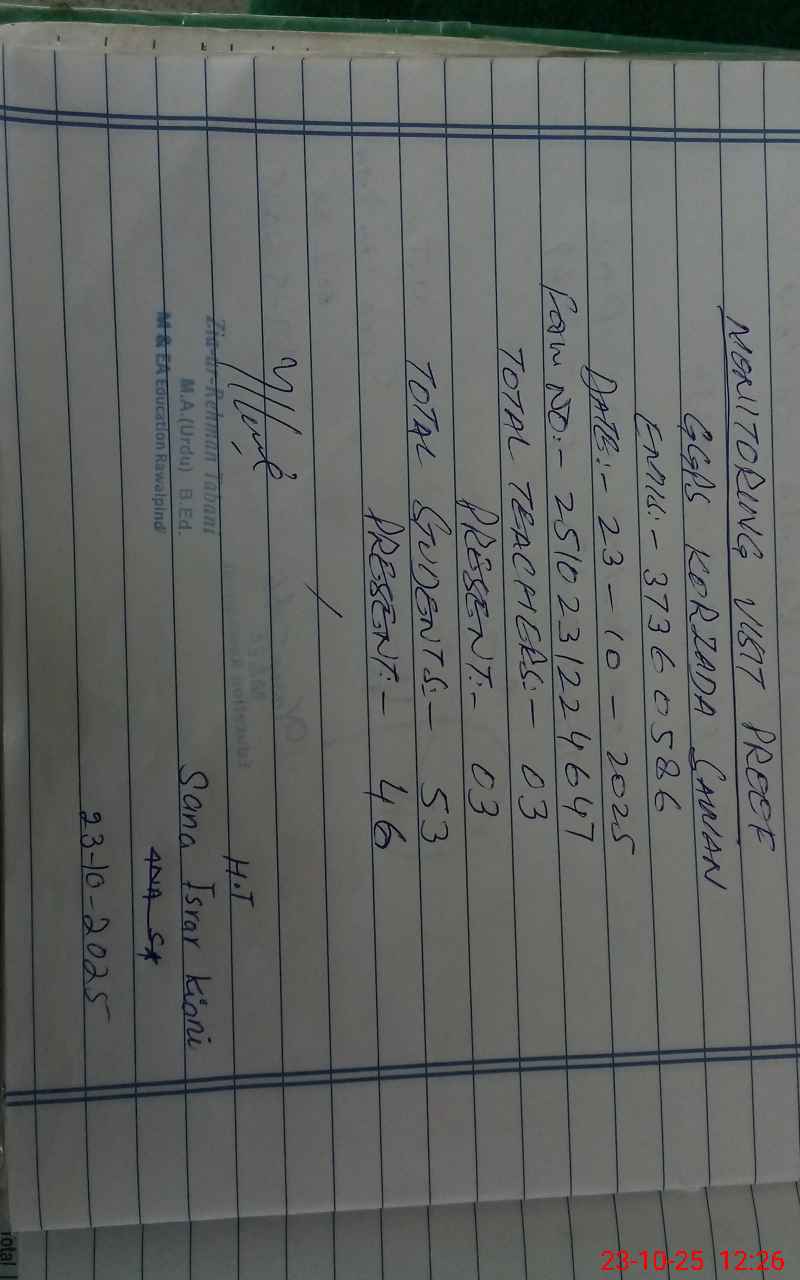 MONITORING VISIT PROOF
GGPS KORZADA SAWAN
EMIS:- 37360586
DATE:- 23-10-2025
FORM NO:- 2510231224647
TOTAL TEACHERS:- 03
PRESENT:- 03
TOTAL STUDENTS:- 53
PRESENT:- 46
H.T
Zia-ur-Rehman Tabani
M.A.(Urdu) B.Ed.
M & EA Education Rawalpindi
Sana Israr Kiani
23-10-2025
Total
23-10-25 12:26